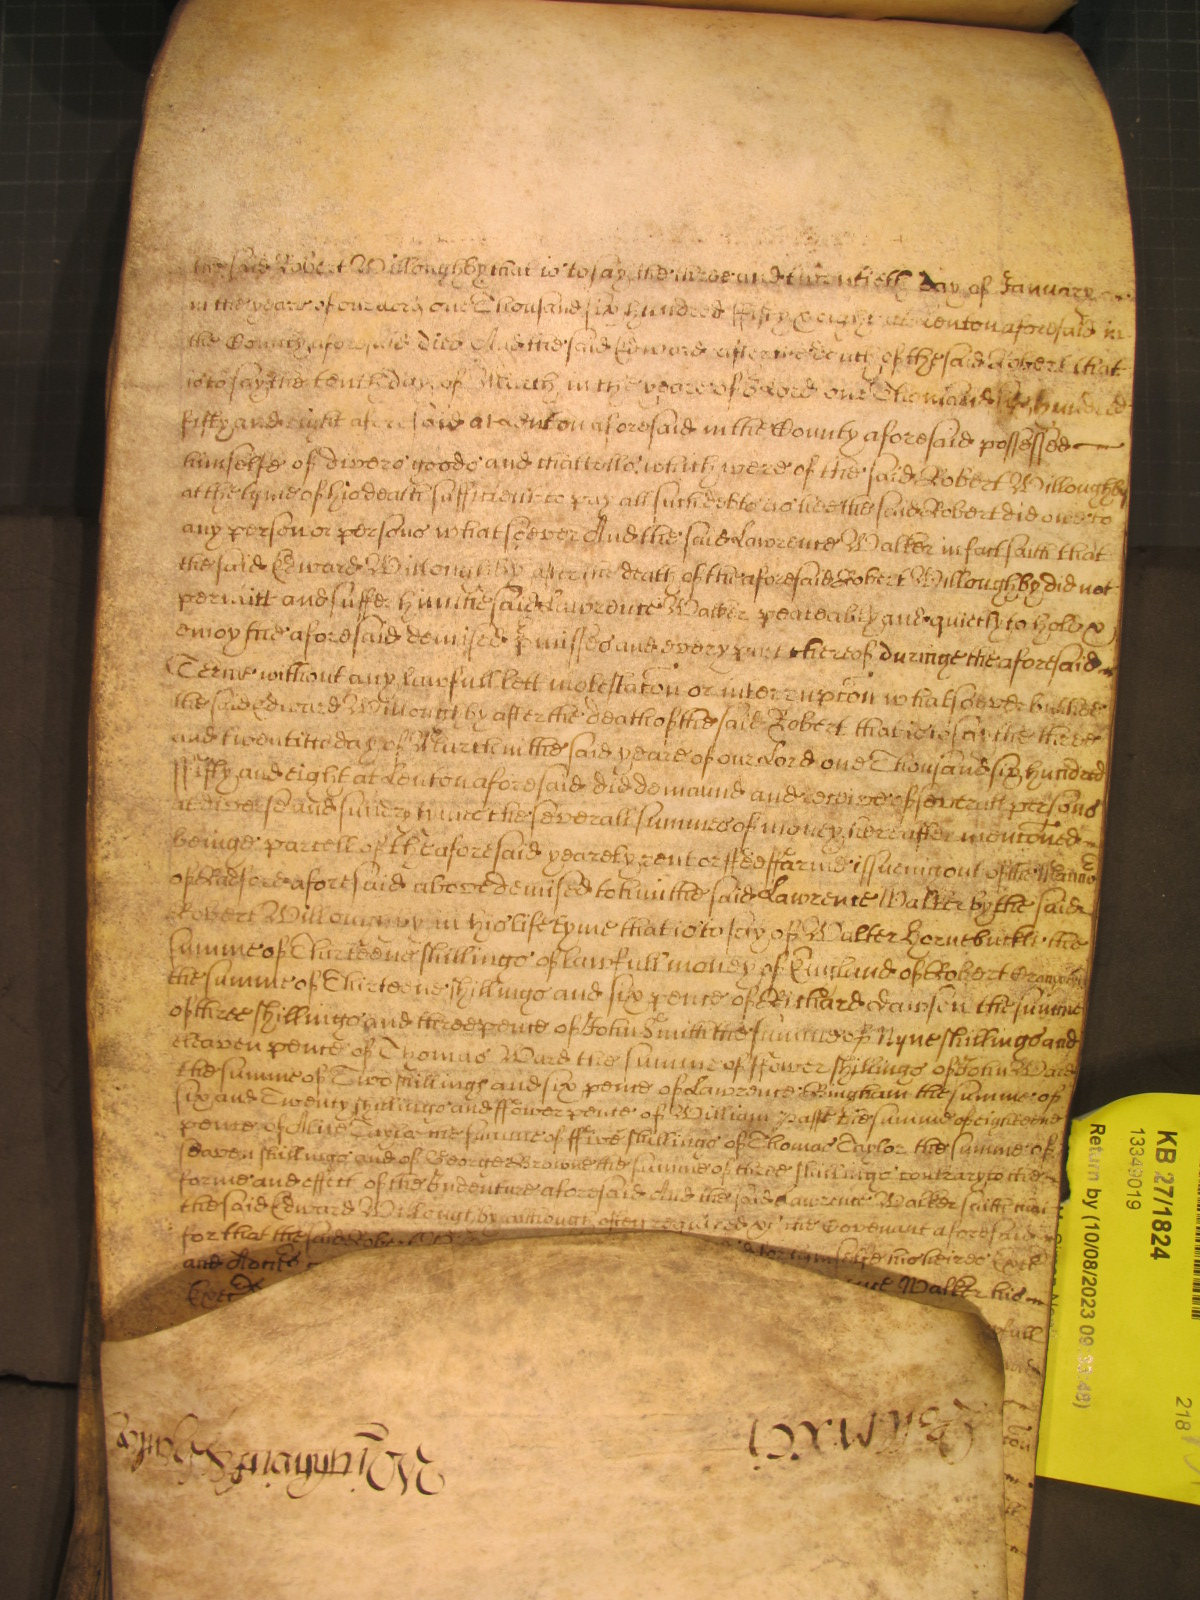 the said Robert Willoughby that is to say the three and twentieth Day of January
in the yeare of our Lord one Thousand six hundred ffifty & eight at Lenton aforesaid in
the County aforesaid died And the said Edward after the death of the said Robert that
is to say the tenth day of March in the yeare of o Lord one Thousand six hundred
fifty and eight aforesaid at Lenton aforesaid in the County aforesaid possessed
himselfe of divers goods and chattells which were of the said Robert Willoughby
at the tyme of his death sufficient to pay all such debts as hee the said Robert did owe to
any person or persons whatsoever And the said Lawrence Walker in fact saith that
the said Edward Willoughby after the death of the aforesaid Robert Willoughby did not
permitt and suffer him the said Lawrence Walker peaceably and quietly to hold &
enioy the aforesaid demised pmisses and every part thereof duringe the aforesaid
Terme without any lawfull lett molestacon or interrupcon whatsoever but hee
the said Edward Willoughby after the death of the said Robert that is to say the three
and twentith day of March in the said yeare of our Lord one Thousand six hundred
ffifty and eight at Lenton aforesaid did demaund and receive of severall persons
at diverse and sundry times the severall summes of money hereafter mencioned
beinge parcell of the aforesaid yearely rent or ffeeffarme issueing out of the Mannor
of Radford aforesaid above demised to him the said Lawrence Walker by the said
Robert Willoughby in his life tyme that is to say of Walter Hornebuckle the
summe of Thirteene shillings of lawfull money of England of Robert
the summe of Thirteene shillings and six pence of Richard Dawson the summe
of three shillings and three pence of John Smith the summe of Nyne shillings and
eleaven pence of Thomas Ward the summe of ffower shillings of John Ward
the summe of Two shillings and six pence of Lawrence Bingham the summe of
six and Twenty shillings and ffower pence of William the summe of eighteene
pence of Alice Taylor the summe of ffive shillings of Thomas Taylor the summe of
seaven shillings and of George Browne the summe of three shillings contrary to the
forme and effect of the Indenture aforesaid And the said Lawrence Walker saith that
the said Edward Willoughby although often required &c the Covenant aforesaid
for that the said Robert for himselfe his heires
and
Walker his
KB 27/1824
13349019
Return by (10/08/2023 09
218